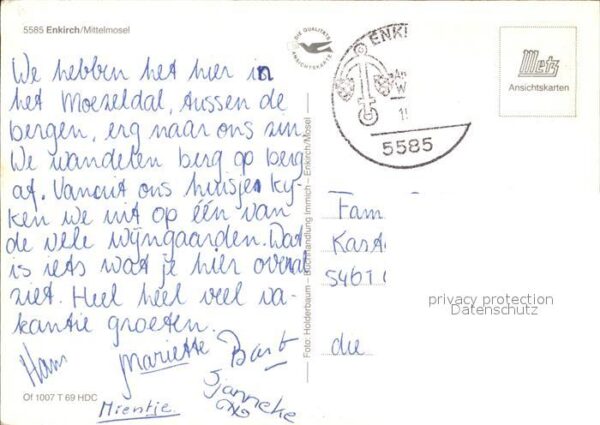 5585 Enkirch/Mittelmosel
We hebben het hier in
het Moezeldal, tussen de
bergen, erg naar ons zin.
We wandelen berg op berg
af. Vanuit ons huisje ky-
ken we uit op één van
de vele wijngaarden. Dat
is iets wat je hier overal
ziet. Heel heel veel va-
kantie groeten.
Hans Mariette Bart
Sjanneke
Mientje
Of 1007 T 69 HDC
Foto: Holderbaum – Buchhandlung Immich – Enkirch/Mosel
DIE QUALITÄTS
ANSICHTSKARTE
ENKI
5585
Metz
Ansichtskarten
Fam
Kast
5461
die
privacy protection
Datenschutz